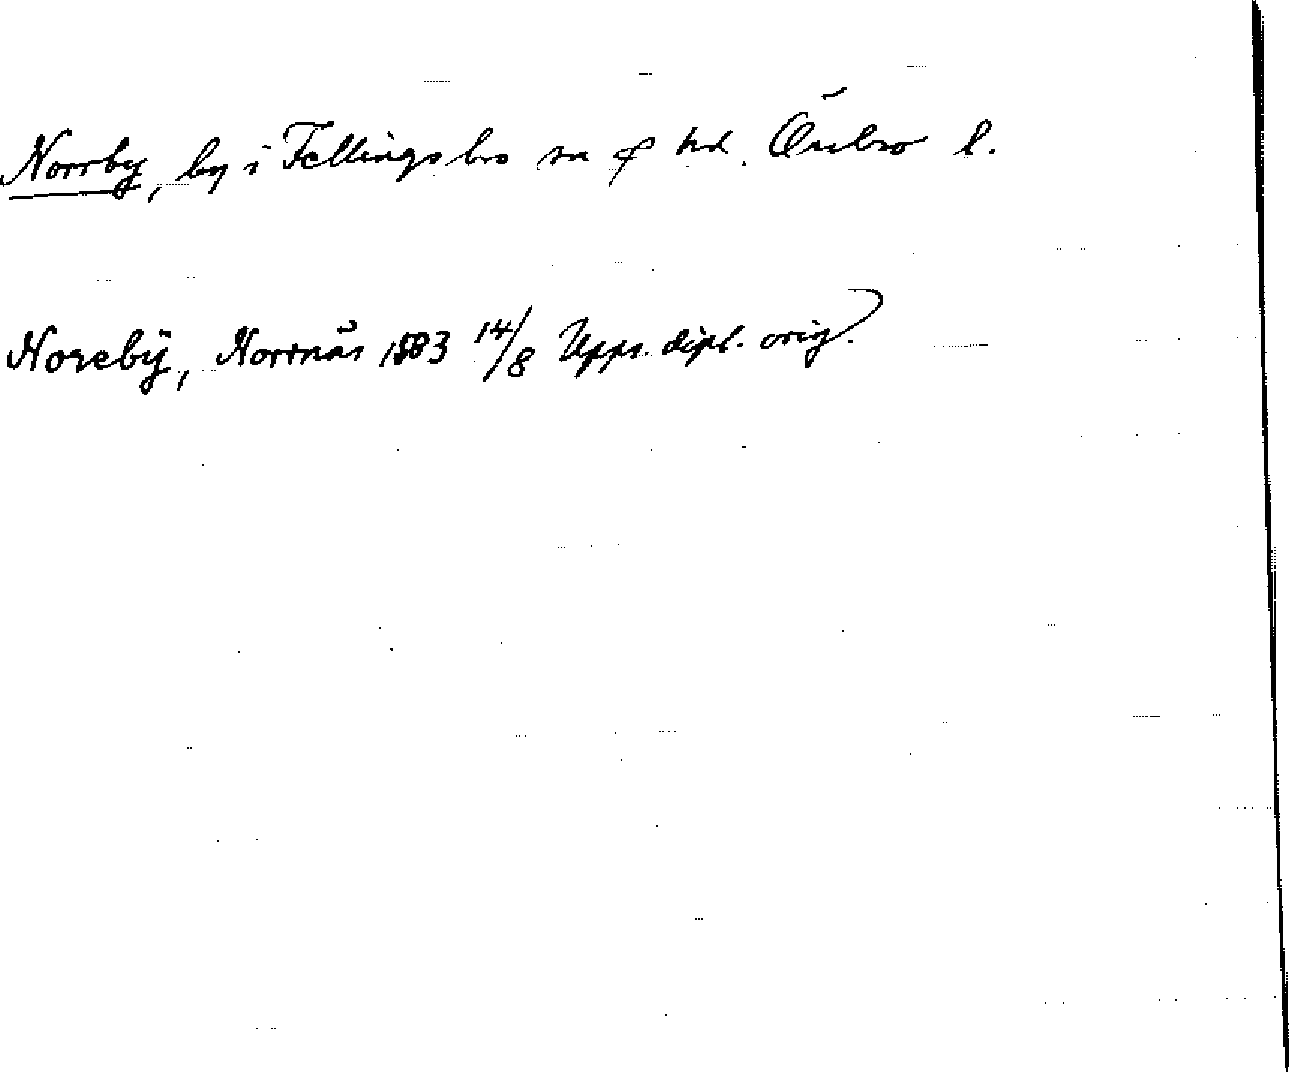 Norrby, by i Fellingsbro sn o hd. Örebro l.
Norebÿ, Norrnäs 1583 14/8 Upps. dipl. orig.